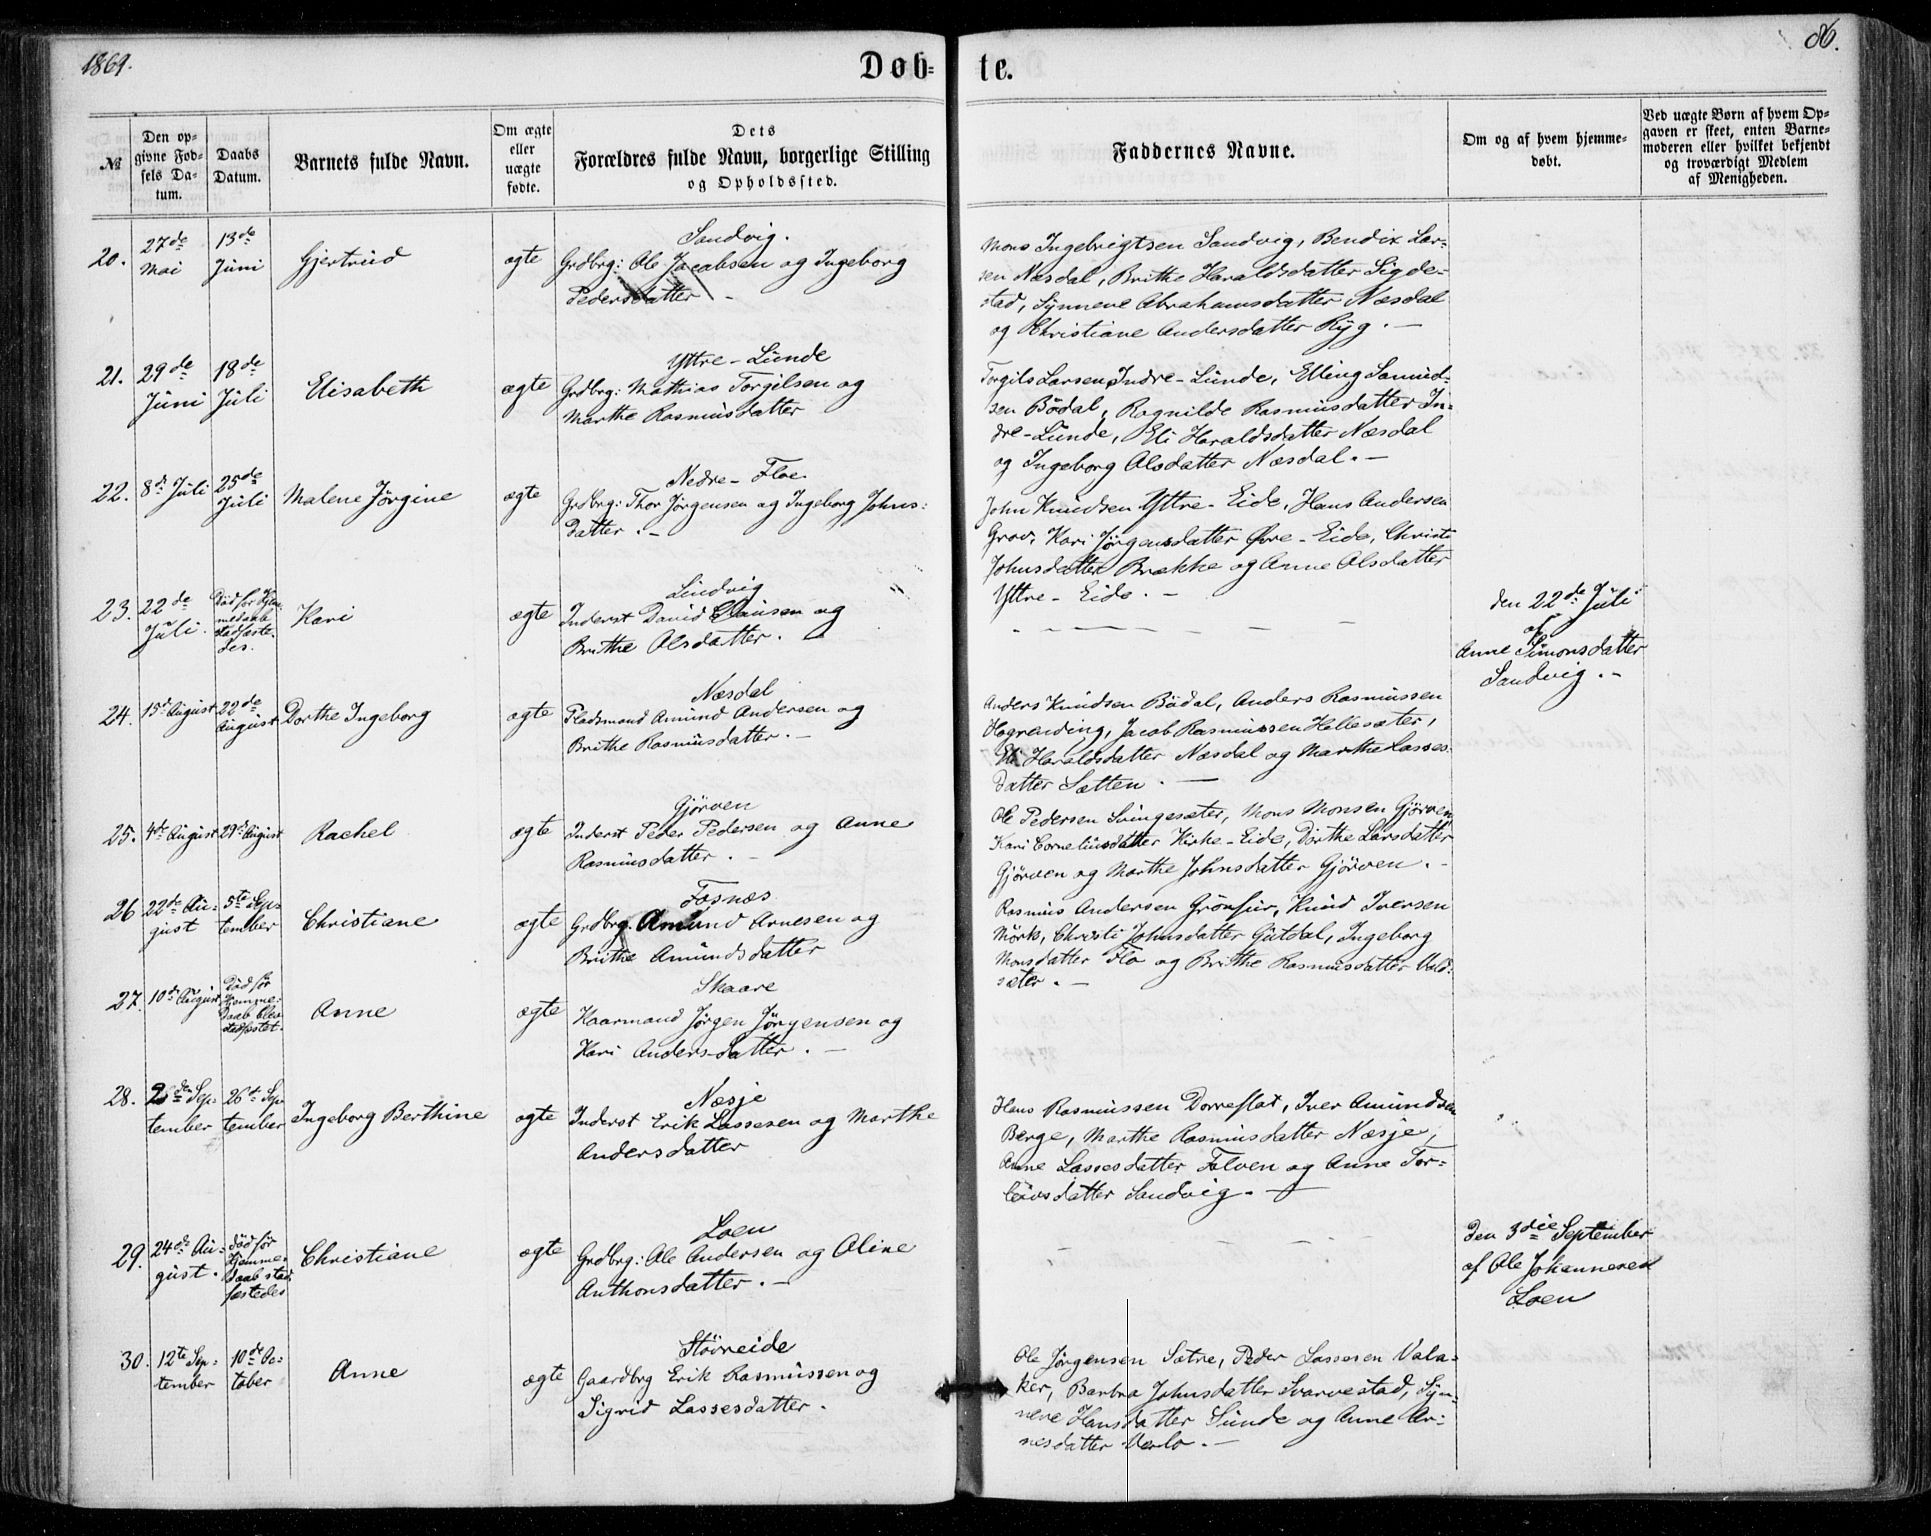 1869.
86.
Døb-
te.
№
Den op-
givne Fød-
sels Da-
tum.
Daabs
Datum.
Barnets fulde Navn.
Om ægte
eller
uægte
fødte.
Dets
Forældres fulde Navn, borgerlige Stilling
og Opholdssted.
Faddernes Navne.
Om og af hvem hjemme-
døbt.
Ved uægte Børn af hvem Op-
gaven er skeet, enten Barne-
moderen eller hvilket bekjendt
og troværdigt Medlem
af Menigheden.
20.
27de
Mai
13de
Juni
Gjertrud
ægte
Sandvig.
Grdbrg: Ole Jacobsen og Ingeborg
Pedersdatter -
Mons Ingebrigtsen Sandvig, Bendix Lar-
sen Næsdal, Brithe Haraldsdatter Sigde-
stad, Synneve Abrahamsdatter Næsdal
og Christiane Andersdatter Ryg. -
21.
29de
Juni
18de
Juli
Elisabeth
ægte
Yttre-Lunde
Grdbrg: Mathias Torgilsen og
Marthe Rasmusdatter
Torgils Larsen Indre-Lunde, Elling Samuel-
sen Bödal, Ragnilde Rasmusdatter In-
dre-Lunde, Eli Haraldsdatter Næsdal
og Ingeborg Olsdatter Næsdal. -
22.
8de Juli
25de
Juli
Malene Jörgine
ægte
Nedre-Floe
Grdbrg: Thor Jörgensen og Ingeborg Johns-
datter. -
John Knudsen Yttre-Eide, Hans Andersen
Grov, Kari Jörgensdatter Øvre-Eide, Christi
Johnsdatter Brække og Anne Olsdatter
Yttre-Eide. -
23.
22de
Juli
Död för Hjem-
medaab
stadfæste-
des.
Kari
ægte
Lindvig
Inderst David Clausen og
Brithe Olsdatter. -
den 22de Juli
af
Anne Simonsdatter
Sandvig. -
24.
15de August
22de
August
Dorthe Ingeborg
ægte
Næsdal
Pladsmand Amund Andersen og
Brithe Rasmusdatter. -
Anders Knudsen Bödal, Anders Rasmussen
Hogrending, Jacob Rasmussen Hellesæter,
Eli Haraldsdatter Næsdal og Marthe Lasses-
datter Sætten. -
25.
4de August
29de August
Rachel
ægte
Gjörven
Inderst Peder Pedersen og Anne
Rasmusdatter. -
Ole Pedersen Svingesæter, Mons Monsen Gjörven,
Kari Corneliusdatter Kirke-Eide, Dorthe Larsdatter
Gjörven og Marthe Johnsdatter Gjörven. -
26
22de Au-
gust
5te Sep-
tember
Christiane
ægte
Fosnæs
Grdbrg. Amund Arnesen og
Brithe Amundsdatter
Rasmus Andersen Grönfur, Knud Iversen
Mörk, Christi Johnsdatter Gutdal, Ingeborg
Monsdatter Flo og Brithe Rasmusdatter Vold-
sæter. -
27.
10de August
Död för
Hjemme-
daab blev
stadfæstet.
Anne
ægte
Skaare
Haarmand Jörgen Jörgensen og
Kari Andersdatter. -
28.
2den Sep-
tember
26de Sep-
tember
Ingeborg Berthine
ægte
Næsje
Inderst Erik Lassesen og Marthe
Andersdatter
Hans Rasmussen Dorreflot, Iver Amundsen
Berge, Marthe Rasmusdatter Næsje,
Anne Lassesdatter Folven og Anne Tor-
leivsdatter Sandvig. -
29.
24de Au-
gust.
död för
Hjemme-
daab stad-
fæstedes
Christiane
ægte
Loen
Grdbrg: Ole Andersen og Oline
Anthonsdatter. -
Den 3die September
af Ole Johannesen
Loen
30.
12te Sep-
tember
10de Oc-
tober
Anne
ægte
Stövreide
Gaardbrg Erik Rasmussen og
Sigrid Lassesdatter.
Ole Jörgensen Sætre, Peder Lassesen Vala-
ker, Barbra Johnsdatter Svarvestad, Syn-
neve Hansdatter Sunde og Anne Ar-
nesdatter Verlo. -